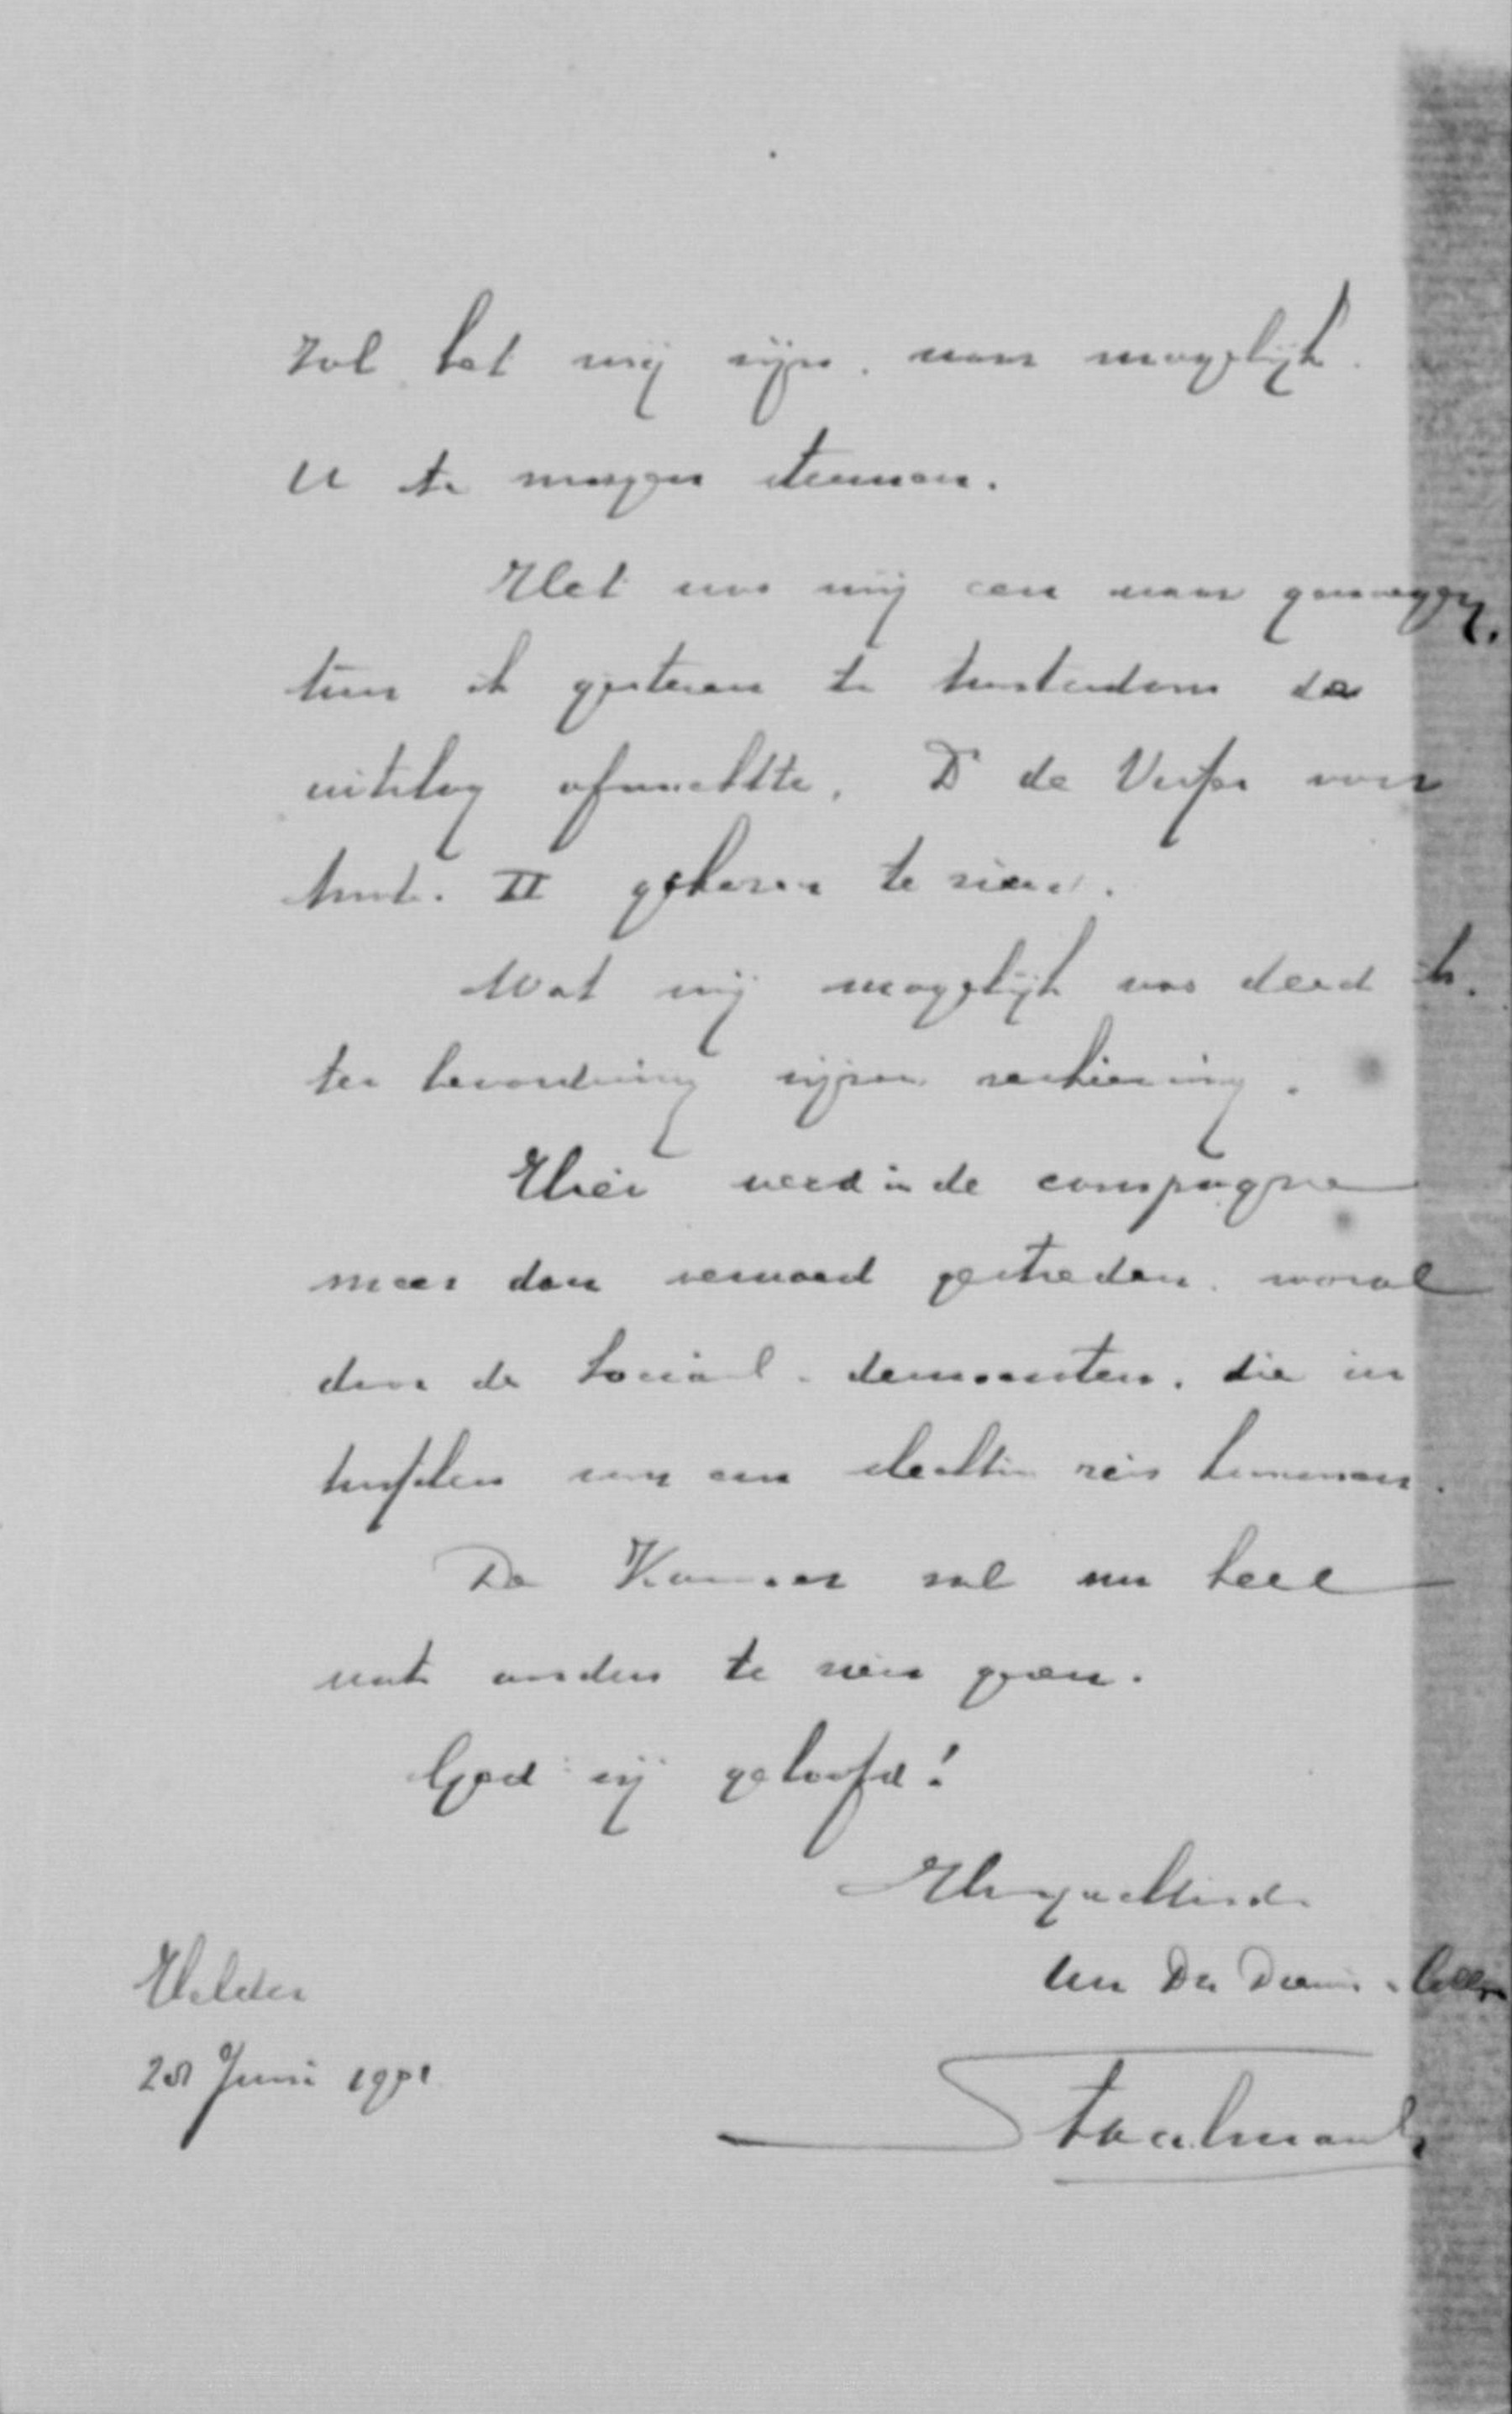 zal het mij zijn, waar mogelijk
U te mogen steunen.
Het was mij een waar genoegen,
toen ik gisteren te Amsterdam de
uitslag afwachtte, Dr de Visser voor
Amst. II gekozen te zien.
Wat mij mogelijk was deed ik
ter bevordering zijner verkiezing.
Hier werd in de campagne
meer dan verwoed gestreden, vooral
door de Sociaal-democraten, die in
van een slechte reis kwamen.
De Kamer zal nu heel
wat anders te zien geven.
God zij geloofd!
Hoogachtend
Uw Dw Dienaar
Staalman
Helder
28 Juni 1901